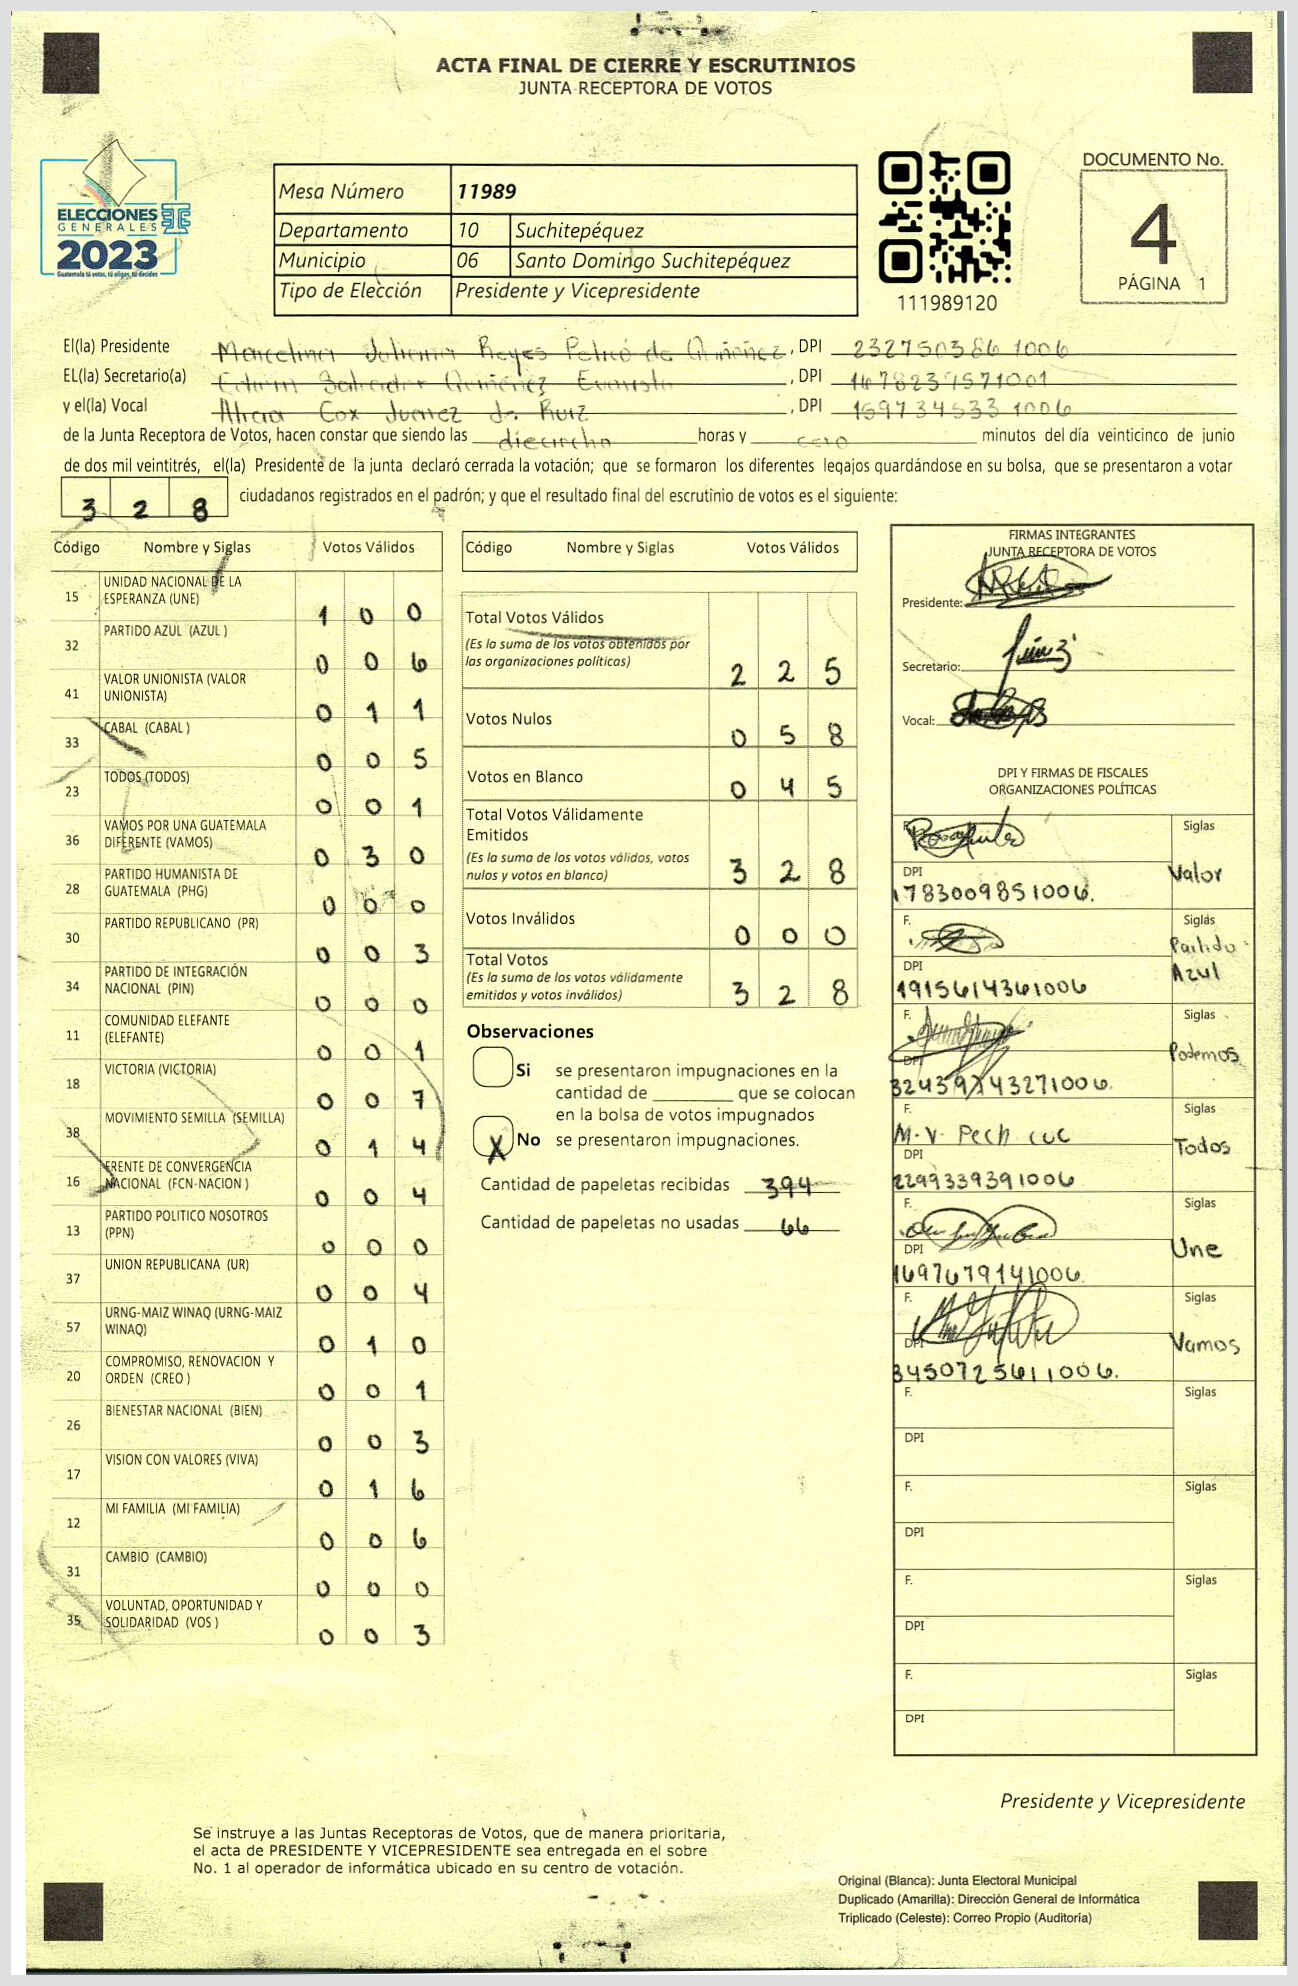 ACTA FINAL DE CIERRE Y ESCRUTINIOS
JUNTA RECEPTORA DE VOTOS
ELECCIONES
GENERALES
2023
Guatemala tú votas, tú eliges, tú decides
Mesa Número 11989
Departamento 10 Suchitepéquez
Municipio 06 Santo Domingo Suchitepéquez
Tipo de Elección Presidente y Vicepresidente
111989120
DOCUMENTO No.
4
PÁGINA 1
El(la) Presidente Marcelina Juliana Reyes Pelicó de Quiñónez, DPI 232750386 1006
EL(la) Secretario(a) Edwin Salvador Quiñónez Evaristo, DPI 1478237571001
y el(la) Vocal Alicia Cox Juarez de Ruiz, DPI 159734533 1006
de la Junta Receptora de Votos, hacen constar que siendo las dieciocho horas y cero minutos del día veinticinco de junio
de dos mil veintitrés, el(la) Presidente de la junta declaró cerrada la votación; que se formaron los diferentes legajos quardándose en su bolsa, que se presentaron a votar
328 ciudadanos registrados en el padrón; y que el resultado final del escrutinio de votos es el siguiente:
Código Nombre y Siglas Votos Válidos
15 UNIDAD NACIONAL DE LA ESPERANZA (UNE) 1 0 0
32 PARTIDO AZUL (AZUL ) 0 0 6
41 VALOR UNIONISTA (VALOR UNIONISTA) 0 1 1
33 CABAL (CABAL ) 0 0 5
23 TODOS (TODOS) 0 0 1
36 VAMOS POR UNA GUATEMALA DIFERENTE (VAMOS) 0 3 0
28 PARTIDO HUMANISTA DE GUATEMALA (PHG) 0 0 0
30 PARTIDO REPUBLICANO (PR) 0 0 3
34 PARTIDO DE INTEGRACIÓN NACIONAL (PIN) 0 0 0
11 COMUNIDAD ELEFANTE (ELEFANTE) 0 0 1
18 VICTORIA (VICTORIA) 0 0 7
38 MOVIMIENTO SEMILLA (SEMILLA) 0 1 4
16 FRENTE DE CONVERGENCIA NACIONAL (FCN-NACION ) 0 0 4
13 PARTIDO POLITICO NOSOTROS (PPN) 0 0 0
37 UNION REPUBLICANA (UR) 0 0 4
57 URNG-MAIZ WINAQ (URNG-MAIZ WINAQ) 0 1 0
20 COMPROMISO, RENOVACION Y ORDEN (CREO ) 0 0 1
26 BIENESTAR NACIONAL (BIEN) 0 0 3
17 VISION CON VALORES (VIVA) 0 1 6
12 MI FAMILIA (MI FAMILIA) 0 0 6
31 CAMBIO (CAMBIO) 0 0 0
35 VOLUNTAD, OPORTUNIDAD Y SOLIDARIDAD (VOS ) 0 0 3
Código Nombre y Siglas Votos Válidos
Total Votos Válidos
(Es la suma de los votos obtenidos por
las organizaciones políticas) 2 2 5
Votos Nulos 0 5 8
Votos en Blanco 0 4 5
Total Votos Válidamente
Emitidos
(Es la suma de los votos válidos, votos
nulos y votos en blanco) 3 2 8
Votos Inválidos 0 0 0
Total Votos
(Es la suma de los votos válidamente
emitidos y votos inválidos) 3 2 8
Observaciones
Si se presentaron impugnaciones en la
cantidad de ________ que se colocan
en la bolsa de votos impugnados
X No se presentaron impugnaciones.
Cantidad de papeletas recibidas 394
Cantidad de papeletas no usadas 66
FIRMAS INTEGRANTES
JUNTA RECEPTORA DE VOTOS
Presidente:
Secretario:
Vocal:
DPI Y FIRMAS DE FISCALES
ORGANIZACIONES POLÍTICAS
F. Siglas
DPI Valor
1783009851006.
F. Siglas
Partido
DPI Azul
1915614361006
F. Siglas
DPI Podemos
F. Siglas
M. V. Pech cuc
DPI Todos
2299339391006
F. Siglas
DPI Une
1697679141006.
F. Siglas
DPI Vamos
3450725611006.
F. Siglas
DPI
F. Siglas
DPI
F. Siglas
DPI
F. Siglas
DPI
Presidente y Vicepresidente
Se instruye a las Juntas Receptoras de Votos, que de manera prioritaria,
el acta de PRESIDENTE Y VICEPRESIDENTE sea entregada en el sobre
No. 1 al operador de informática ubicado en su centro de votación.
Original (Blanca): Junta Electoral Municipal
Duplicado (Amarilla): Dirección General de Informática
Triplicado (Celeste): Correo Propio (Auditoría)